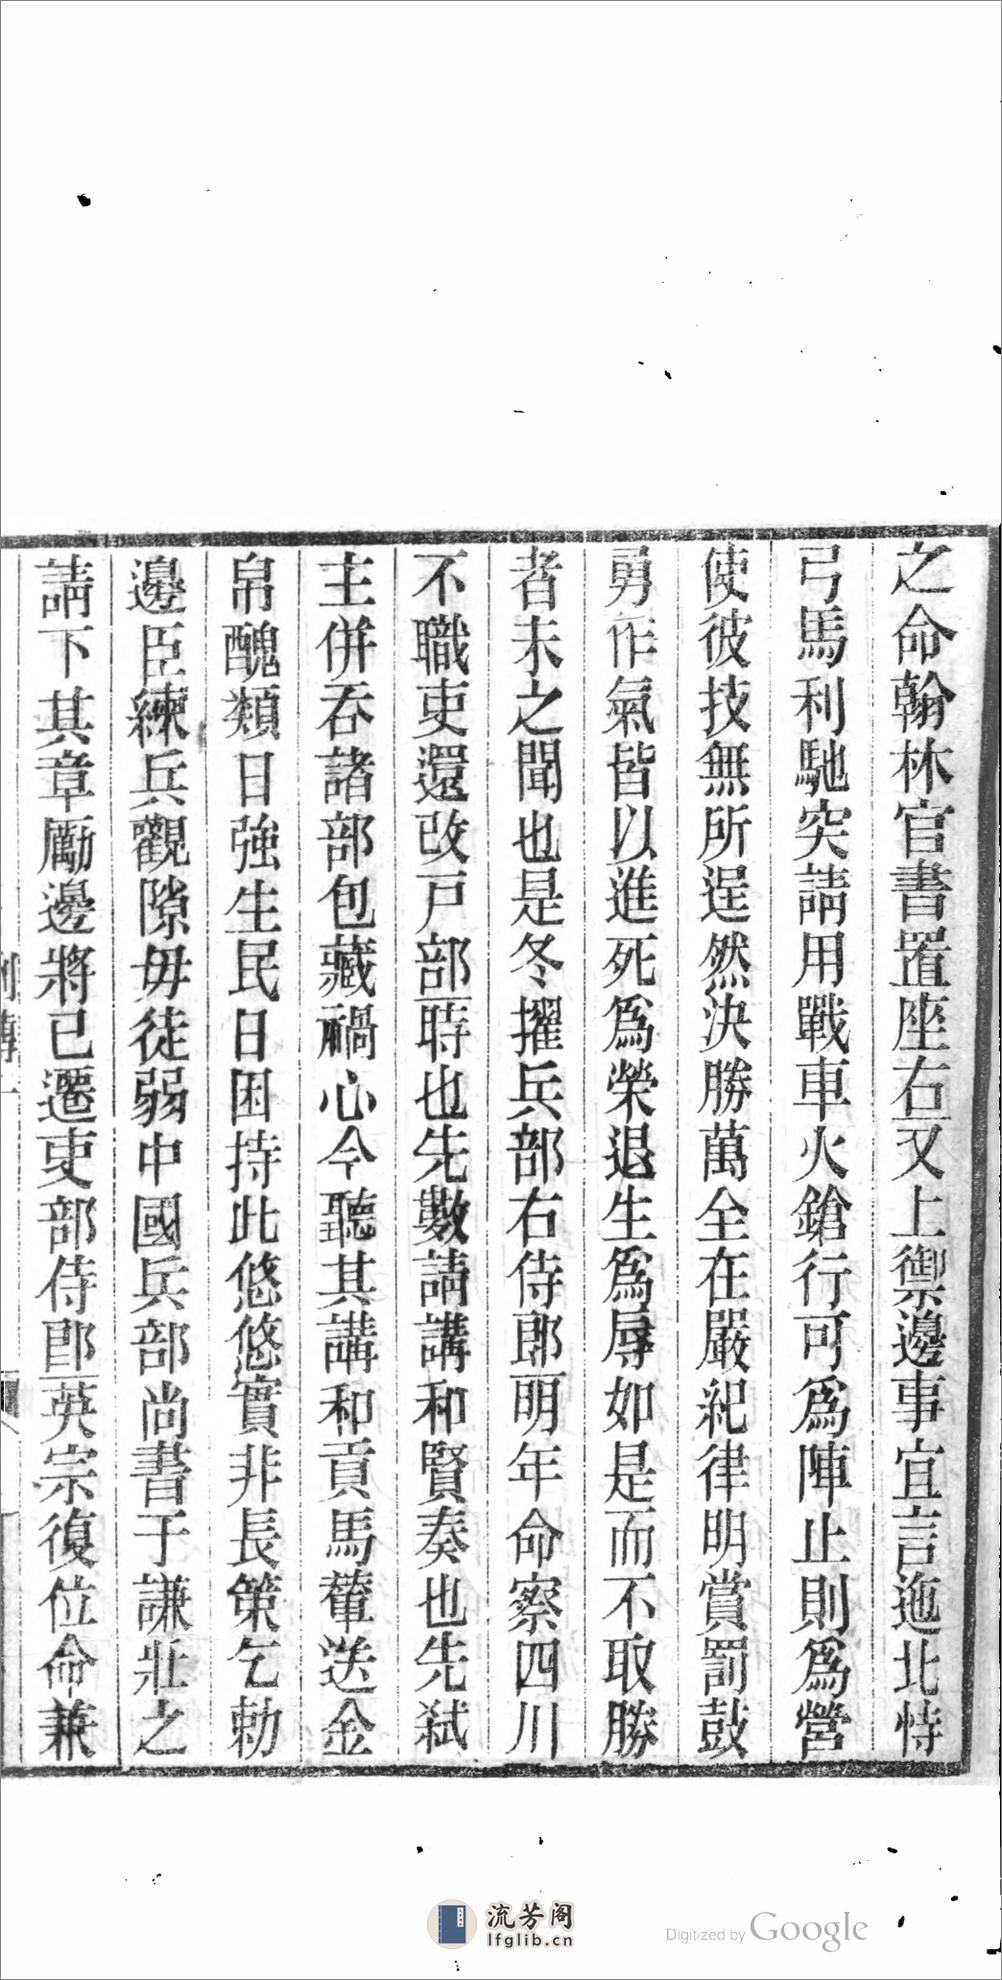 之命翰林官書置座右又上禦邊事宜言迤北恃
弓馬利馳突請用戰車火鎗行可爲陣止則爲營
使彼技無所逞然決勝萬全在嚴紀律明賞罰鼓
勇作氣皆以進死爲榮退生爲辱如是而不取勝
者未之聞也是冬擢兵部右侍郎明年命察四川
不職吏還改戸部時也先數請講和賢奏也先弑
主併吞諸部包藏禍心今聽其講和貢馬輦送金
帛醜類日強生民日困持此悠悠實非長策乞勅
邊臣練兵觀隙毋徒弱中國兵部尚書于謙壯之
請下其章厲邊將已遷吏部侍郎英宗復位命兼
流芳阁
lfglib.cn
Digitized by Google